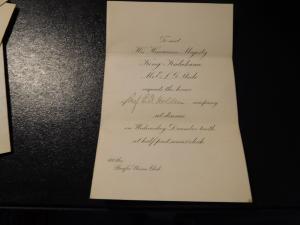 To meet
His Hawaiian Majesty
King Kalakaua
Mr.
requests the honor
of Prof. company
at dinner
on Wednesday December tenth
at half past seven o'clock
at the
Pacific Union Club